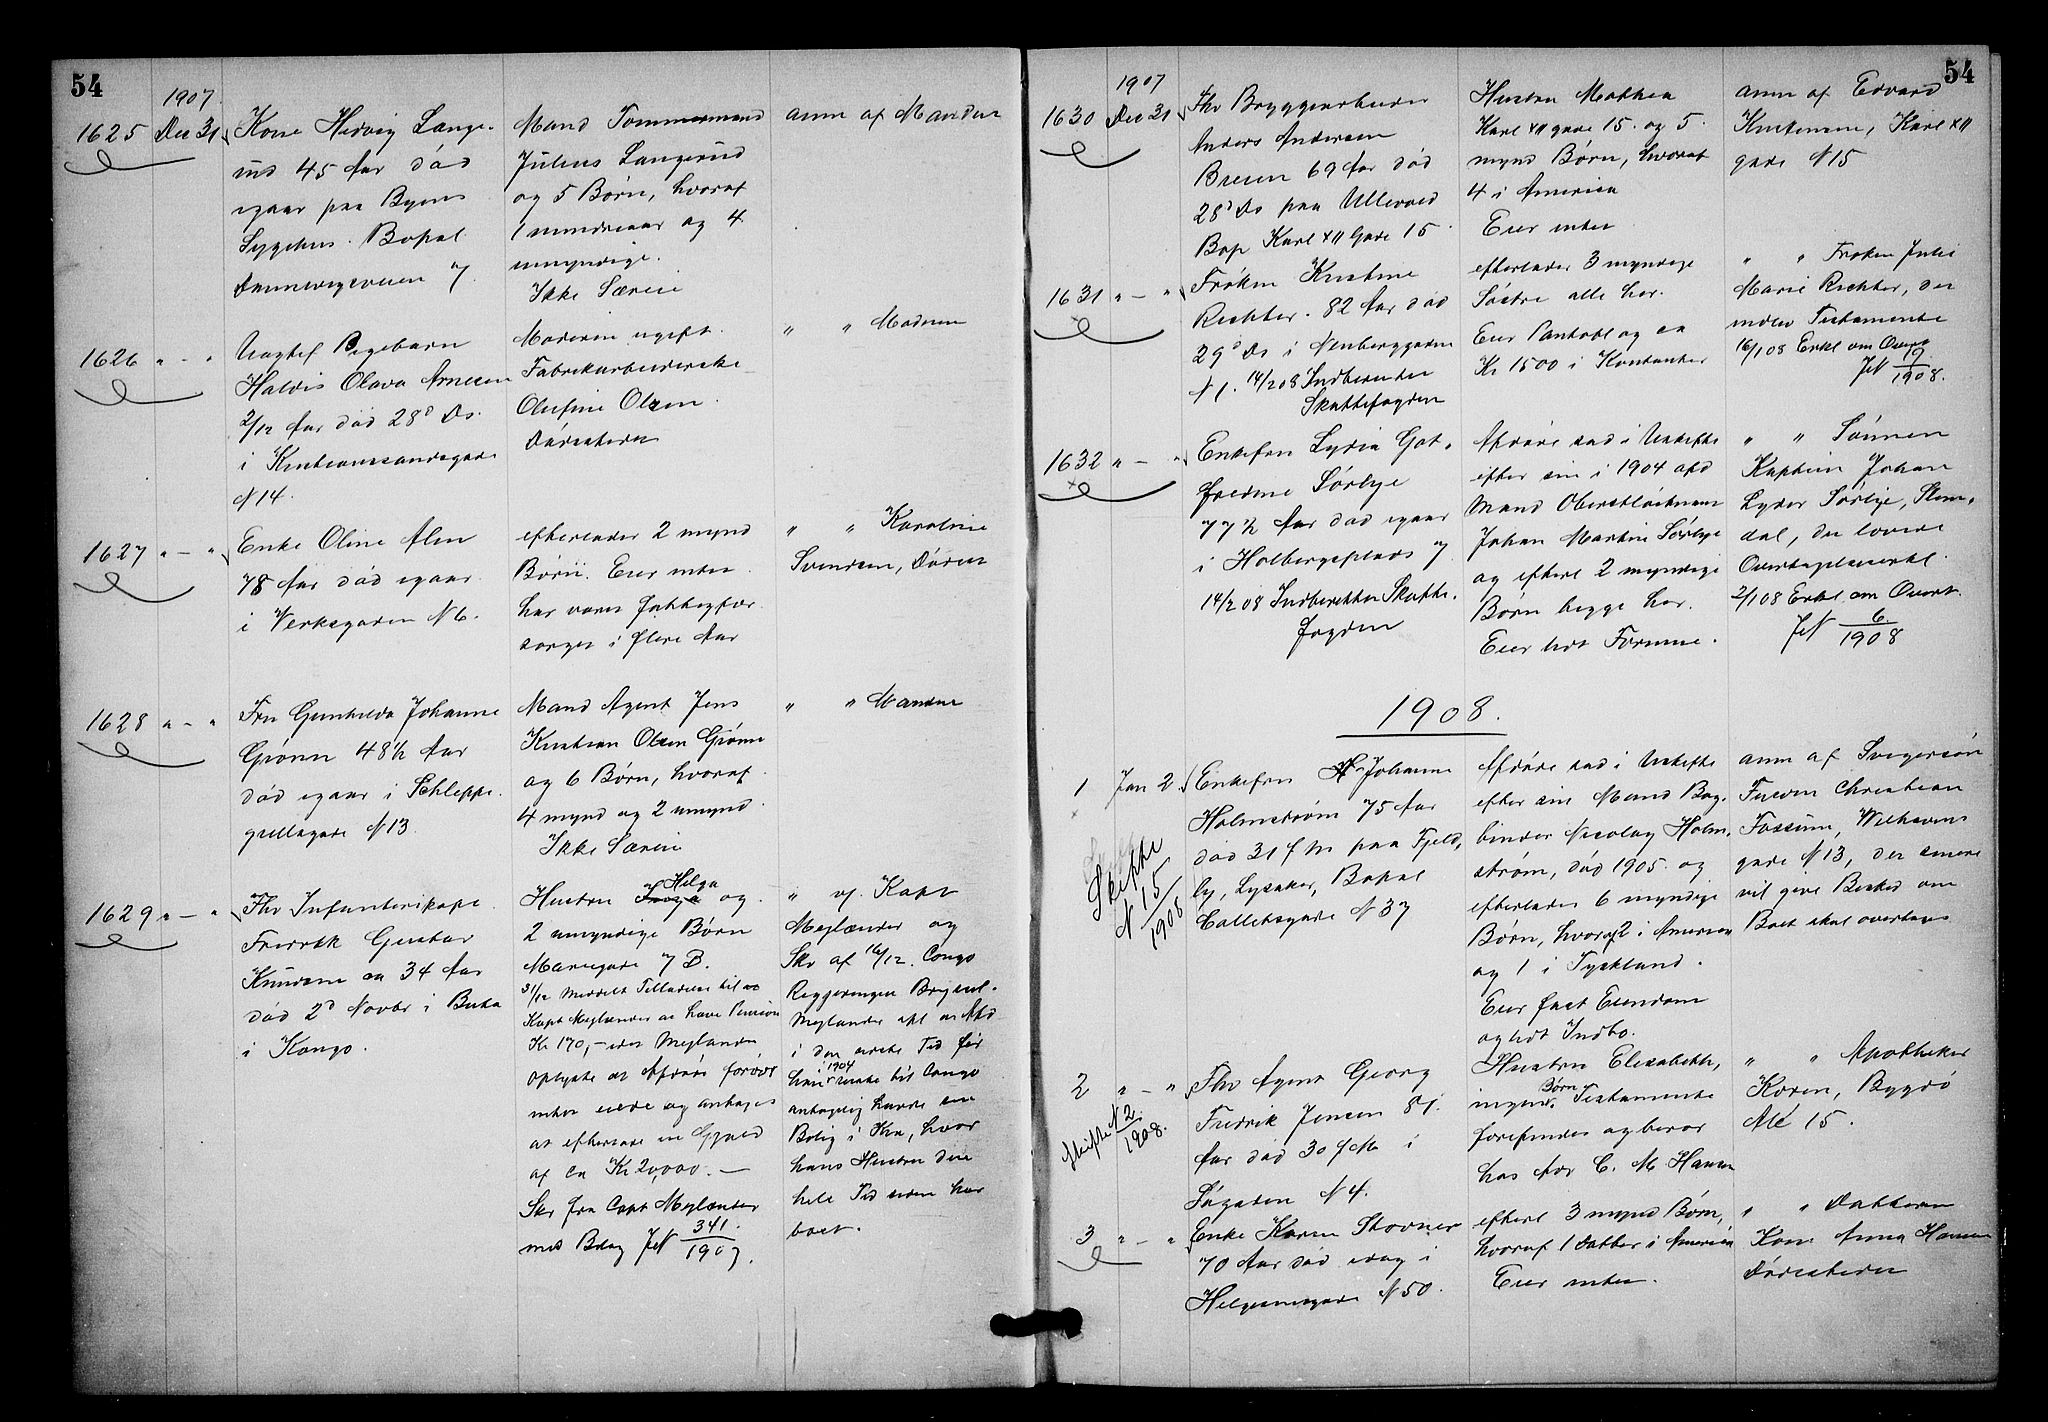 54
1907
1625 Dec 31
Kone Hedvig Lange-
rud 45 Aar død
igaar paa Byens
Sygehus. Bopæl
Drammensveien 7
Mand Tømmermand
Julius Langerud
og 5 Børn, hvoraf
1 mindreaar og 4
umyndige.
Ikke Særeie
anm af Manden
1626 " - "
Uægtef Pigebarn
Haldis Olava Arnesen
2/12 Aar død 28d Ds.
i Kristianssandsgade
N 14.
Moderen ugift
Fabrikarbeiderske
Olufine Olsen.
Dødsattesten
" " Moderen
1627 " - "
Enke Oline Alm
78 Aar død igaar
i Verksgaden N 6.
efterlader 2 mynd
Børn. Eier intet
har været fattigfor-
sorget i flere Aar
" " Karoline
Svendsen, Døren
1628 " - "
Fru Gunhilda Johanne
Grønn 48½ Aar
død igaar i Schleppe-
grellsgade N 13.
Mand Agent Jens
Kristian Olsen Grønn
og 6 Børn, hvoraf
4 mynd og 2 umynd.
Ikke Særeie
" " Manden
1629 " - "
Fhv Infanterikapt.
Fredrik Gustav
Knudsen ca 34 Aar
død 2d Novbr i Buta
i Kongo.
Helga
Hustru og
2 umyndige Børn
Mariegade 7 B.
31/12 Meddelt Tilladelse til at
Kapt Meylænder at hæve Pension
Kr 170,- idet Meylænder
oplyste at Afdøde forøvr
intet eiede og antages
at efterlade en Gjæld
af ca Kr 20,000. -
Skr fra Capt Meylænder
med Bilag JN 341/1907.
" vf. Kapt
Meylænder og
Skr af 16/12. Congo
Regjeringen Bryssel.
Meylænder opl at Afd
i den første Tid før
1904
han reiste til Congo
antagelig havde sin
Bolig i Kra, hvor
hans Hustru den
hele Tid siden har
boet.
54
1907
1630 Dec 31
Fhv Bryggearbeider
Anders Andersen
Bresen 69 Aar død
28d Ds paa Ullevold
Bop Karl XII Gade 15
Hustru Mathea
Karl XII gade 15. og 5.
mynd Børn, hvoraf
4 i America
Eier intet
anm af Edvard
Kristensen, Karl XII
gade N 15
1631 " - "
Frøken Kristine
Richter. 82 Aar død
29d Ds i Neubergaden
N 1. 14/2 08 Indberettet
Skattefogden
efterlader 3 myndige
Søstre alle her.
Eier Pantobl og ca
Kr 1500 i Kontanter
" " Frøken Julie
Marie Richter, der
indlev Testamente
16/1 08 Erkl om Overt
JN 19/1908.
1632 " - "
Enkefru Lydia Got-
fredine Sørbye
77½ Aar død igaar
i Holbergsplads 7
14/2 08 Indberettet Skatte-
fogden
Afdøde sad i Uskifte
efter sin i 1904 afd
Mand Oberstløitnant
Johan Martin Sørbye
og efterl 2 myndige
Børn begge her.
Eier lidt Formue.
" " Sønnen
Kaptein Johan
Lyder Sørbye, Slem-
dal, der lovede
Overtagelseserkl.
2/1 08 Erkl om Overt.
JN 6/1908
1908.
1 Jan 2.
Skifte
N 15/1908
Enkefru Johanne
Holmstrøm 75 Aar
død 31 f M paa Fjeld-
ly, Lysaker, Bopæl
Colletsgade N 37
Afdøde sad i Uskifte
efter sin Mand Bog-
binder Nicolay Holm-
strøm, død 1905. og
efterlader 6 myndige
Børn, hvoraf 2 i America
og 1 i Tyskland.
Eier fast Eiendom
og lidt Indbo.
anm af Svigersøn
Christian
Fossum, Welhavens
gade N 13, der senere
vil give Besked om
Boet skal overtages
2 " - "
Skifte N 2/1908.
Fhv Agent Georg
Fredrik Jensen 81.
Aar død 30 f M i
Søgaden N 4.
Hustru Elisabeth,
Børn
ingen. Testamente
forefindes og beror
hos Adv C. M. Hansen
" " Apotheker
Koren, Bygdø
Alé 15.
3 " - "
Enke Karen Stovner
70 Aar død idag i
Helgesensgade N 50.
efterl 3 mynd Børn,
hvoraf 1 Datter i America
Eier intet.
" " Datteren
Kone Anna Hansen
Dødsattesten